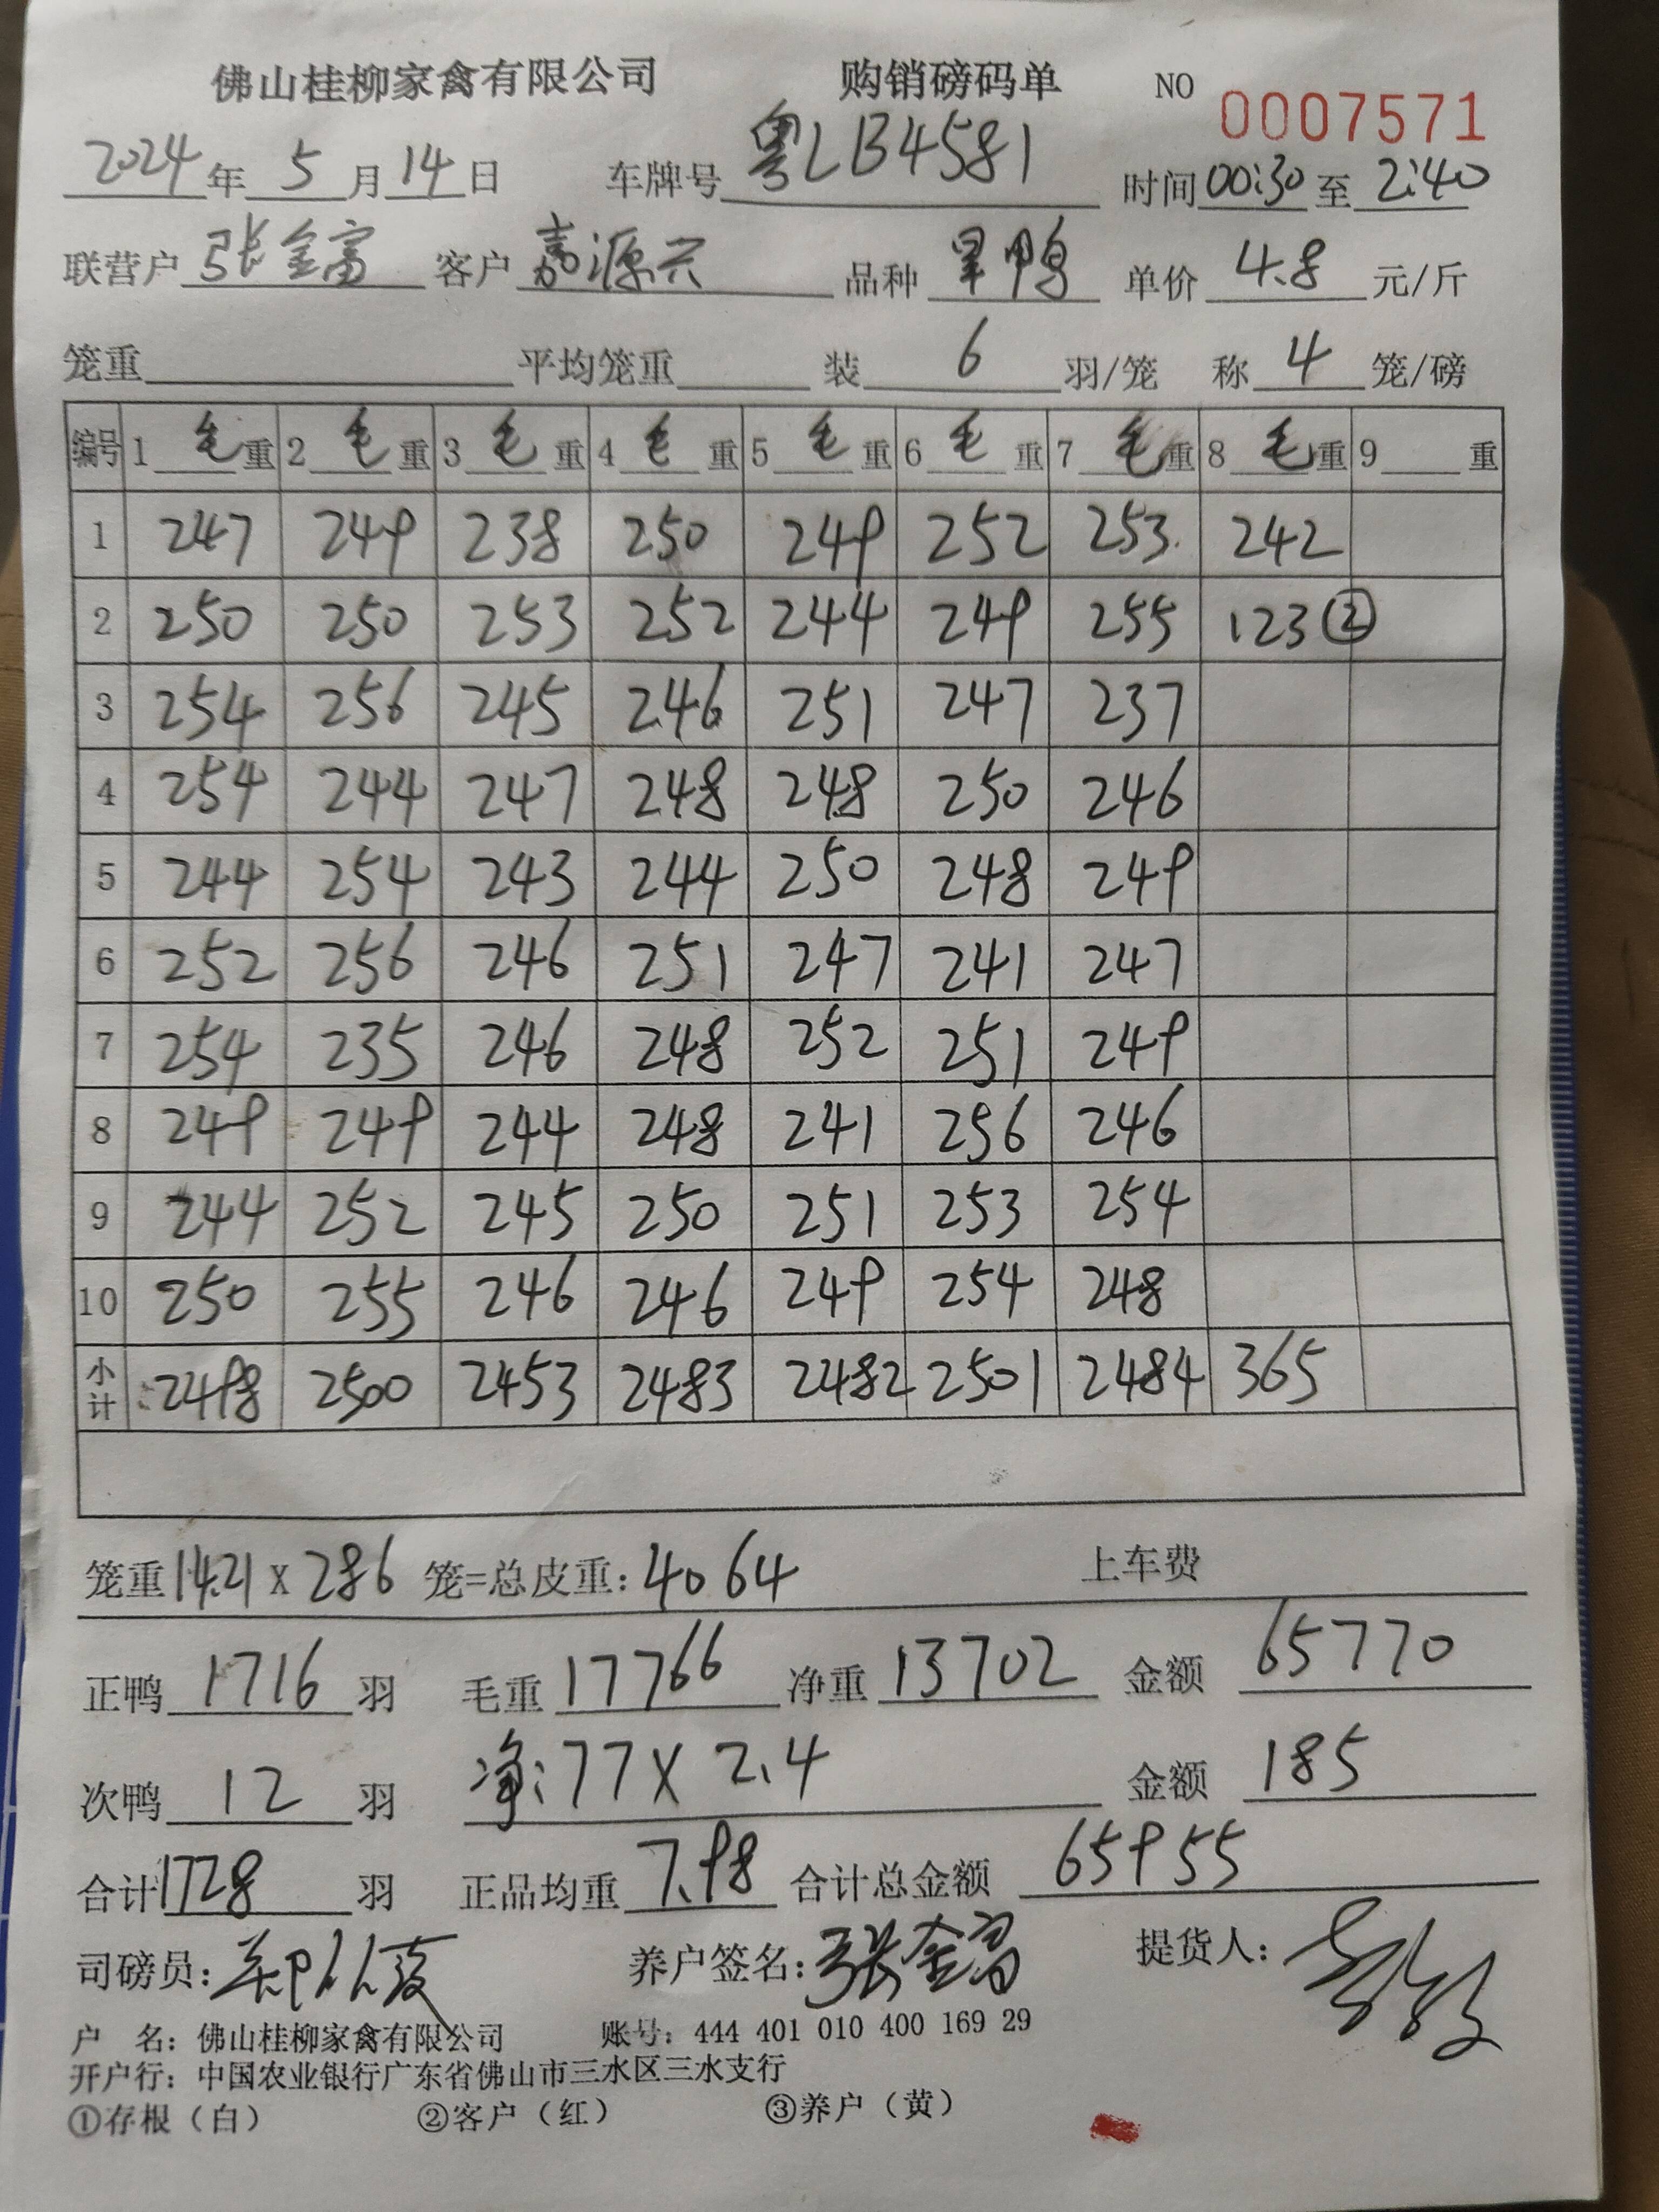 佛山桂柳家禽有限公司 购销磅码单 NO 0007571
2024年5月14日 车牌号粤LB4581 时间00:30至2:40
联营户张金富 客户嘉源兴 品种旱鸭 单价4.8元/斤
笼重 平均笼重 装6羽/笼 称4笼/磅
编号 1毛重 2毛重 3毛重 4毛重 5毛重 6毛重 7毛重 8毛重 9重
1 247 249 238 250 249 252 253 242
2 250 250 253 252 244 249 255 123②
3 254 256 245 246 251 247 237
4 254 244 247 248 248 250 246
5 244 254 243 244 250 248 249
6 252 256 246 251 247 241 247
7 254 235 246 248 252 251 249
8 249 249 244 248 241 256 246
9 244 252 245 250 251 253 254
10 250 255 246 246 249 254 248
小计 2498 2500 2453 2483 2482 2501 2484 365
笼重14.21x286笼=总皮重:4064 上车费
正鸭1716羽 毛重17766 净重13702 金额65770
次鸭12羽 净:77x2.4 金额185
合计1728羽 正品均重7.98 合计总金额65955
司磅员: 养户签名:张金富 提货人:
户 名: 佛山桂柳家禽有限公司 账号: 444 401 010 400 169 29
开户行: 中国农业银行广东省佛山市三水区三水支行
①存根(白) ②客户(红) ③养户(黄)